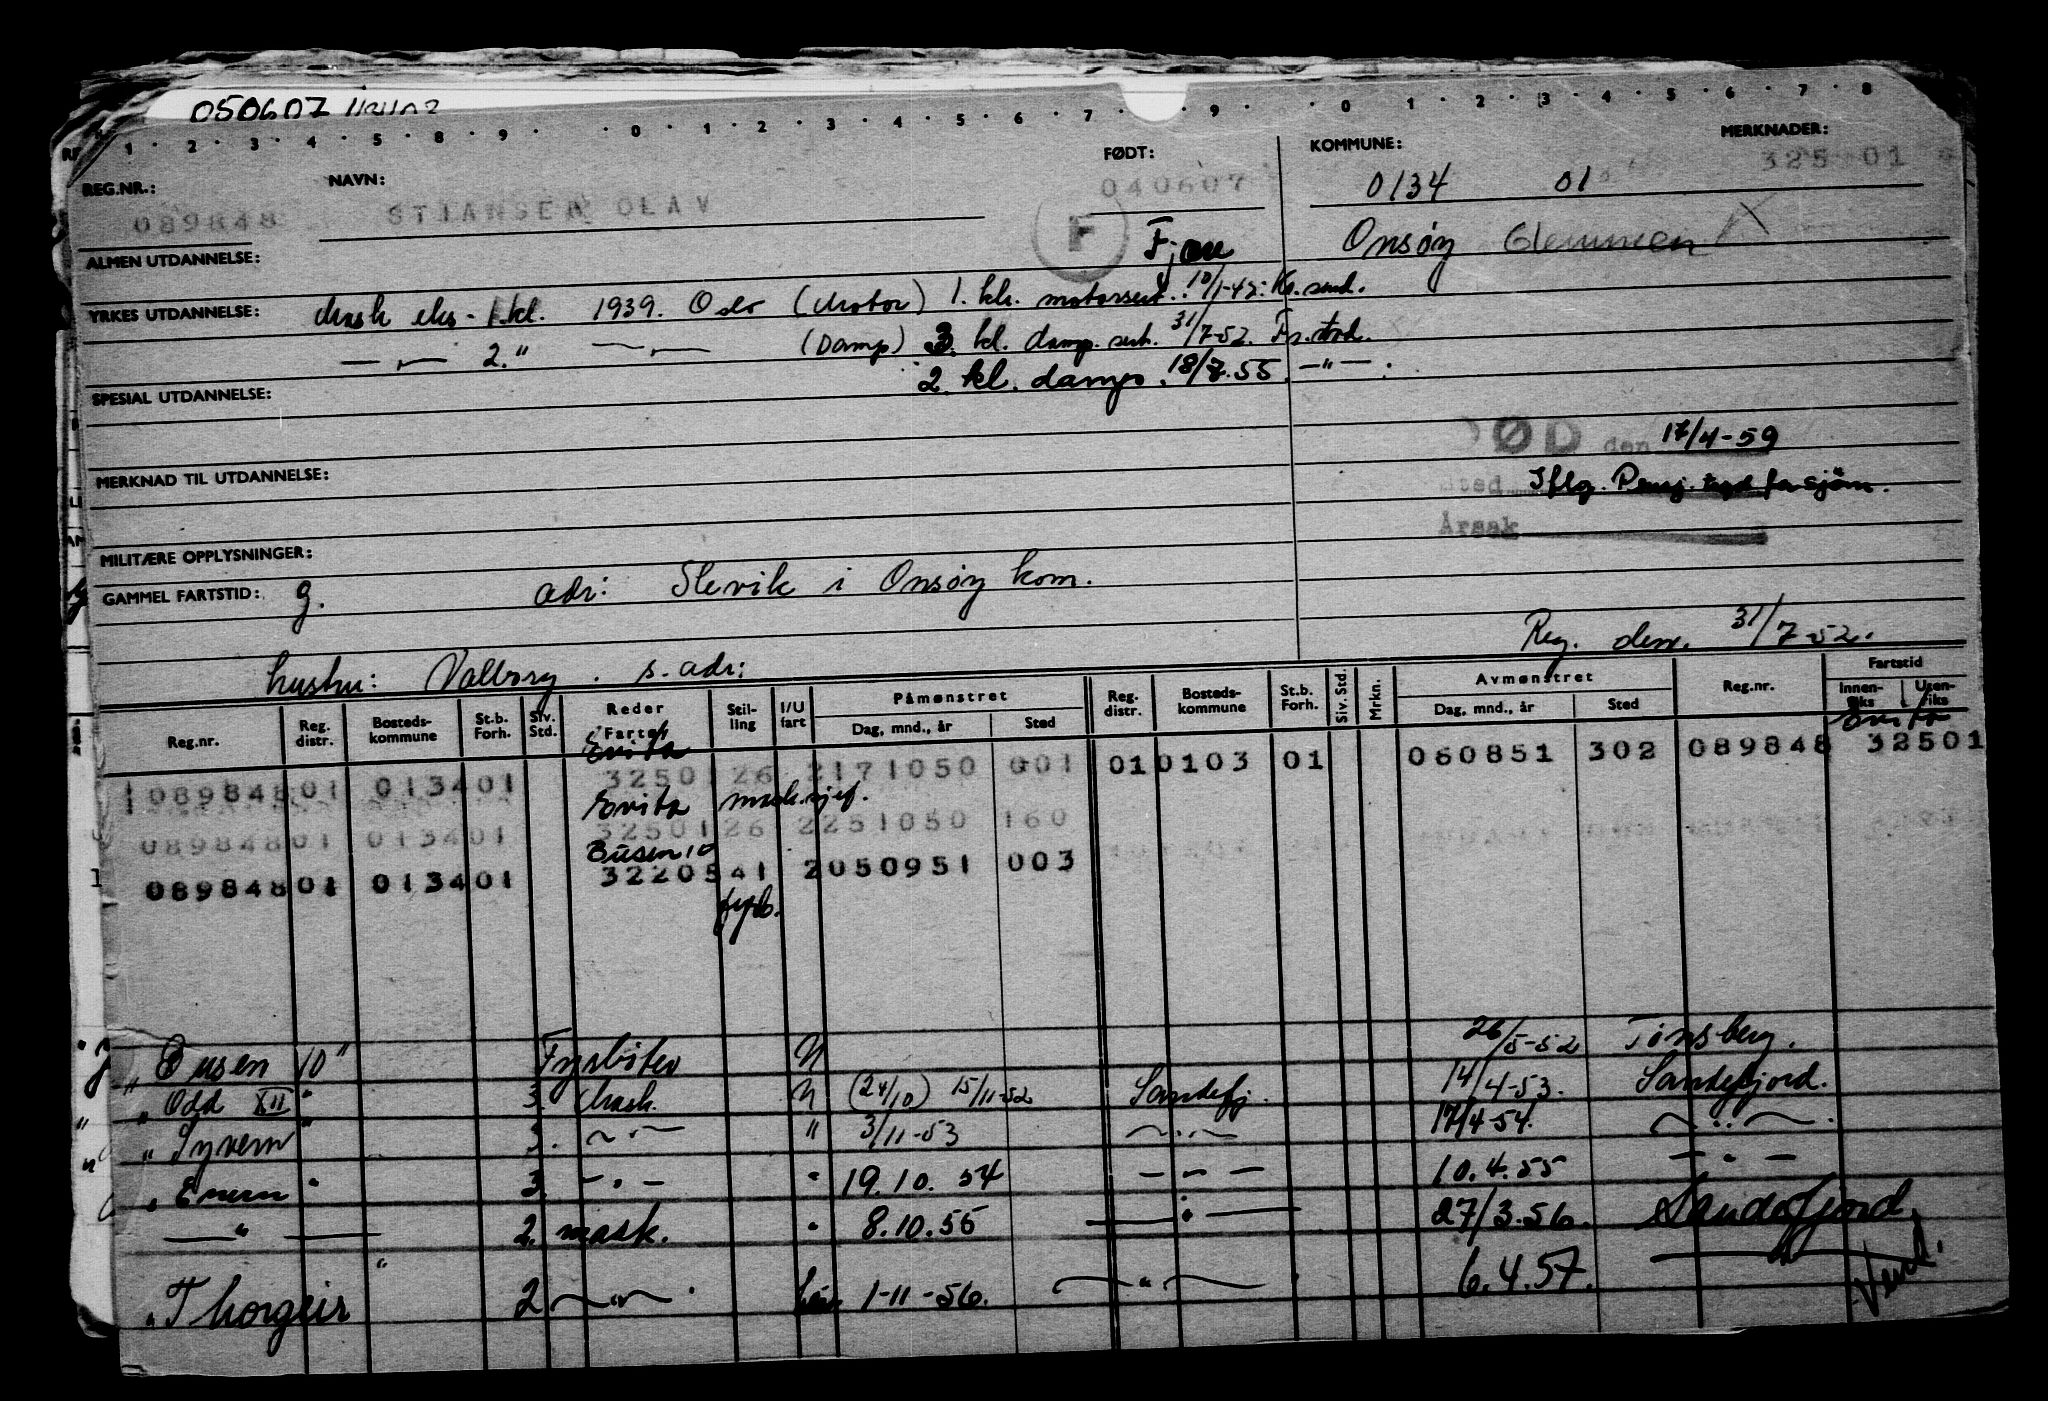 050607
1 · 2 · 3 · 4 · 5 · 8 · 9 · · 0 · 1 · 2 · 3 · 4 · 5 · 6 · 7 · · 9 · · 0 · 1 · 2 · 3 · 4 · 5 · 6 · 7 · 8
REG.NR.: NAVN: FØDT: KOMMUNE: MERKNADER:
089848 STIANSEN OLAV 040607 0134 01 325 01
F Fjære Onsøy Glemmen
ALMEN UTDANNELSE:
YRKES UTDANNELSE: Mask eks. 1.kl. 1939. Oslo (Motor) 1. kl. motorsert. 10/1-42. Kr.sund.
— " — 2. " — " — (Damp) 3. kl. damp. sert. 31/7-52. Fr.stad.
2. kl. damp. 18/7.55. —"—.
SPESIAL UTDANNELSE:
DØD den 17/4-59
MERKNAD TIL UTDANNELSE:
Sted Iflg. Pensj. trygd for sjøm.
Årsak
MILITÆRE OPPLYSNINGER:
GAMMEL FARTSTID: g. adr: Slevik i Onsøy kom.
Reg. den. 31/7-52.
hustru: Valborg. s. adr:
Reg.nr. Reg. distr. Bosteds-kommune St.b. Forh. Siv. Std. Reder Fartøi Stil-ling I/U fart Påmønstret Dag, mnd., år Sted Reg. distr. Bosteds-kommune St.b. Forh. Siv. Std. Mrkn. Avmønstret Dag, mnd., år Sted Reg.nr. Fartstid Innen-riks Uten-riks
Evita Evita
089848 01 0134 01 32501 26 2 171050 001 01 0103 01 060851 302 089848 32501
Evita mask.sjef.
089848 01 0134 01 32501 26 2 251050 160
Busen 10
089848 01 0134 01 32205 41 2 050951 003
fyrb.
" Busen 10" Fyrbøter U 26/5-52 Tønsberg.
" Odd XII " 3. Mask. U (24/10) 15/11-52 Sandefj. 14/4-53. Sandefjord.
" Syvern " 3. — " — " 3/11-53 — " — 17/4-54. — " —.
" Enern " 3 — " — " 19.10.54 — " — 10.4.55 — " —
— " — 2. mask. " 8.10.55 — " — 27/3.56. Sandefjord
" Thorgeir " 2 — " —. 1-11-56. — " — 6.4.57. —
Vend.